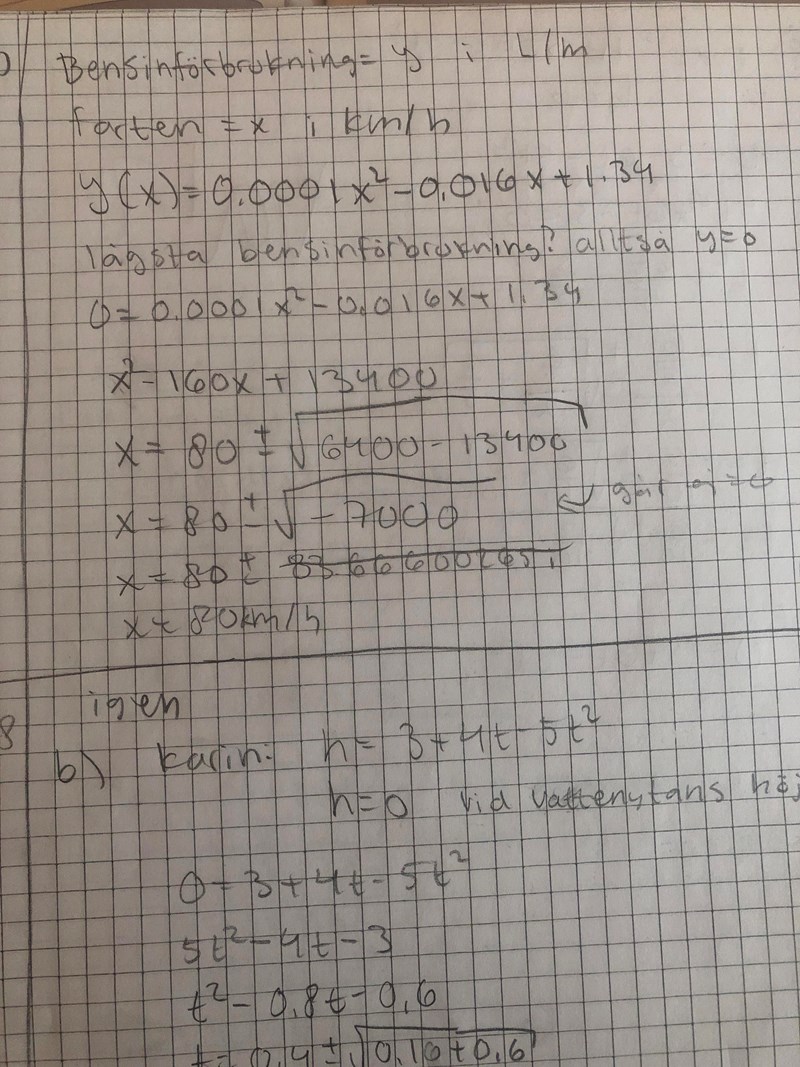 Bensinförbrukning = y i L/m
farten = x i km/h
y(x) = 0.0001x² - 0.016x + 1.34
lägsta bensinförbrukning? alltså y=0
0 = 0.0001x² - 0.016x + 1.34
x² - 160x + 13400
x = 80 ± √6400 - 13400
x = 80 ± √-7000
x = 80 ±
x = 80km/h
igen
8
b) Karin: h = 3 + 4t - 5t²
h=0 vid vattenytans höj
0 = 3 + 4t - 5t²
5t² - 4t - 3
t² - 0.8t - 0.6
t = 0.4 ± √0.16 + 0.6